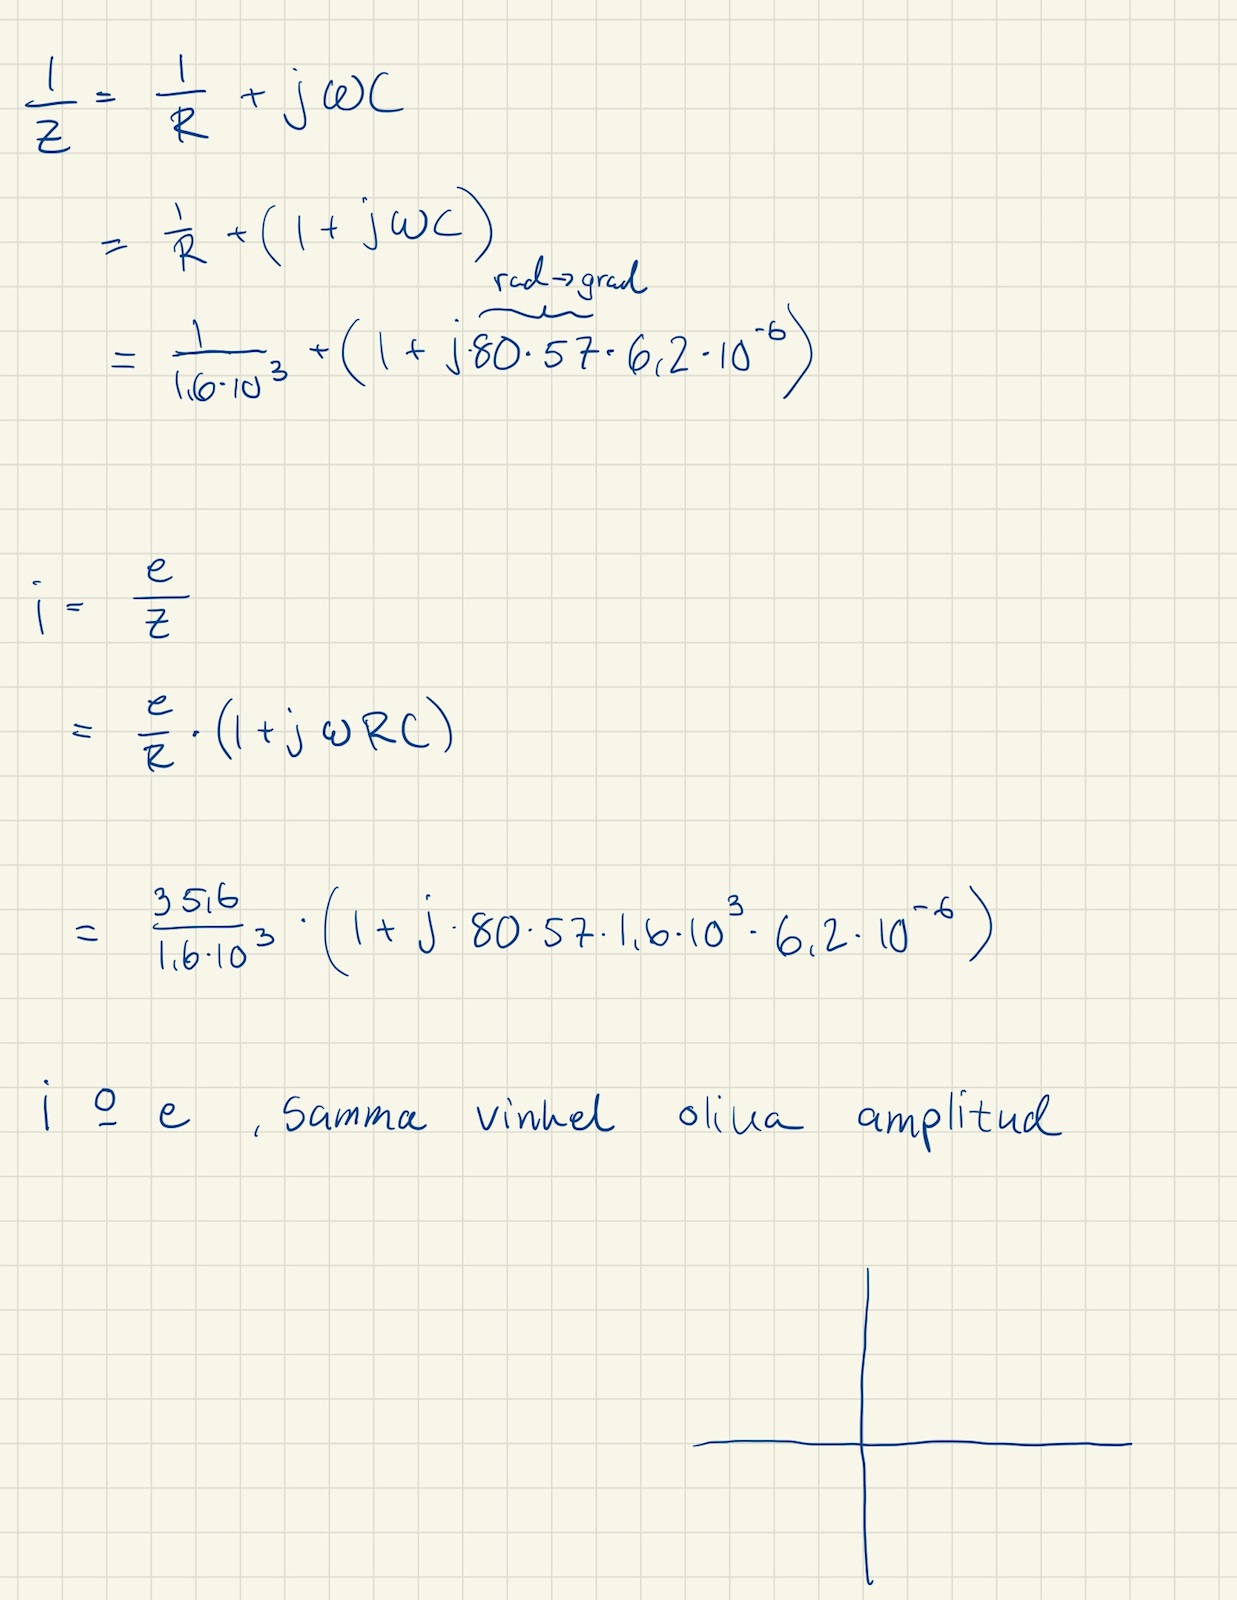 1/Z = 1/R + jωC
= 1/R + (1 + jωC)
rad→grad
= 1/1,6·10³ + (1 + j·80·57·6,2·10⁻⁶)
i = e/Z
= e/R · (1 + jωRC)
= 35,6/1,6·10³ · (1 + j·80·57·1,6·10³·6,2·10⁻⁶)
i o e , samma vinkel olika amplitud